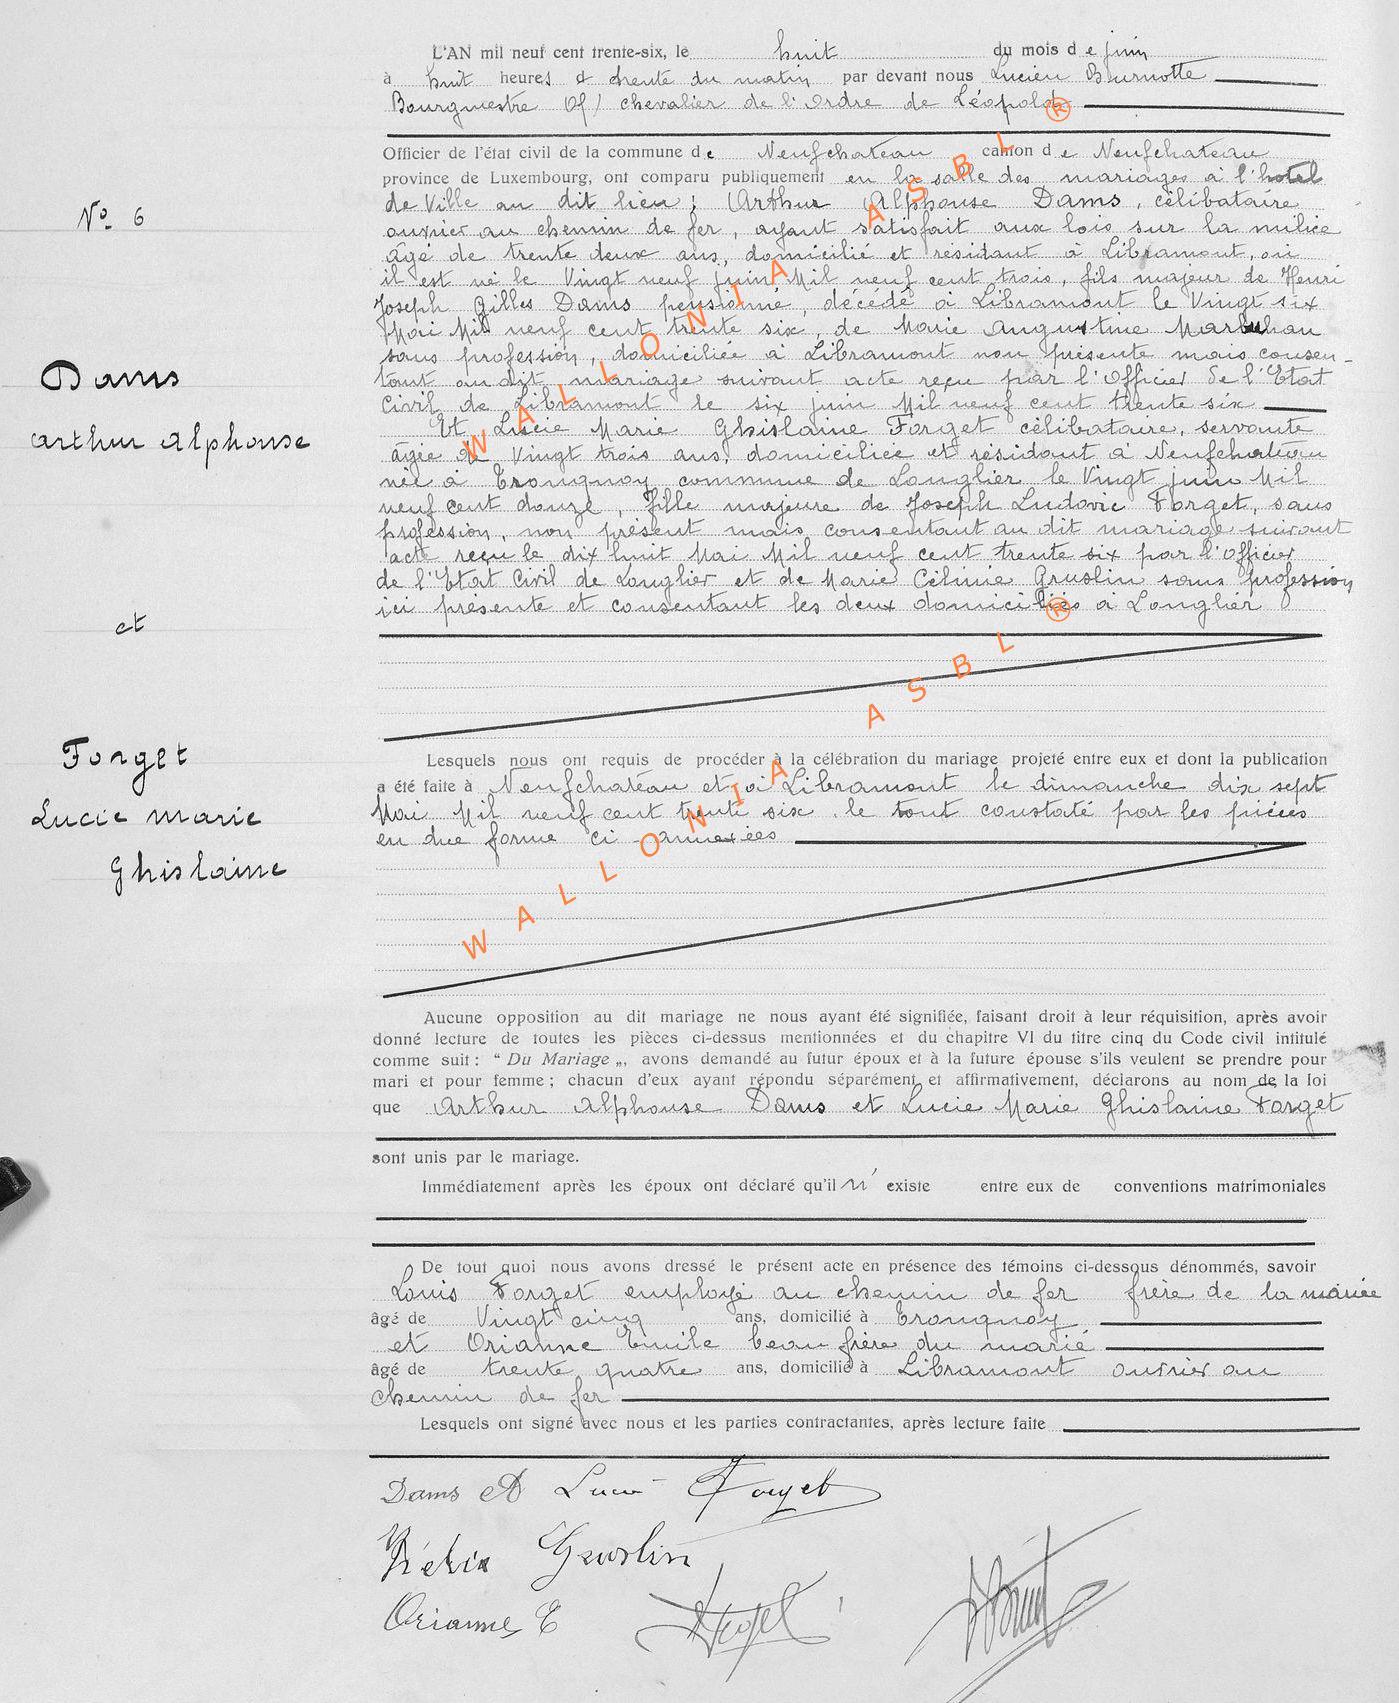 L'AN mil neuf cent trente-six, le huit du mois de juin
à huit heures & trente du matin par devant nous Lucien Burnotte
Bourgmestre Off chevalier de l'ordre de Léopold
Officier de l'état civil de la commune de Neufchateau canton de Neufchateau
province de Luxembourg, ont comparu publiquement en la salle des mariages à l'hotel
de Ville au dit lieu ; Arthur Alphonse Dams, célibataire
ouvrier au chemin de fer, ayant satisfait aux lois sur la milice
N° 6
âgé de trente deux ans, domicilié et résidant à Libramont, où
il est né le Vingt neuf juin Mil neuf cent trois, fils majeur de Henri
Joseph Gilles Dams pensionné, décédé à Libramont le Vingt six
Mai Mil neuf cent trente six, de Marie Augustine
sans profession, domiciliée à Libramont non présente mais consen-
tant au dit mariage suivant acte reçu par l'Officier de l'Etat
Civil de Libramont le six juin Mil neuf cent trente six
Dams
Arthur Alphonse
Et Lucie Marie Ghislaine Forget célibataire, servante
âgée de Vingt trois ans, domiciliée et résidant à Neufchateau
née à Tronquoy commune de Longlier le Vingt juin Mil
neuf cent douze, fille majeure de Joseph Ludovic Forget, sans
profession, non présent mais consentant au dit mariage suivant
acte reçu le dix huit Mai Mil neuf cent trente six par l'officier
de l'Etat Civil de Longlier et de Marie Célinie Gruslin sans profession
ici présente et consentant les deux domiciliés à Longlier
et
Forget
Lucie Marie
Ghislaine
Lesquels nous ont requis de procéder à la célébration du mariage projeté entre eux et dont la publication
a été faite à Neufchateau et à Libramont le dimanche dix sept
Mai Mil neuf cent trente six. le tout constaté par les pièces
en due forme ci-annexées
Aucune opposition au dit mariage ne nous ayant été signifiée, faisant droit à leur réquisition, après avoir
donné lecture de toutes les pièces ci-dessus mentionnées et du chapitre VI du titre cinq du Code civil intitulé
comme suit : “ Du Mariage „, avons demandé au futur époux et à la future épouse s'ils veulent se prendre pour
mari et pour femme ; chacun d'eux ayant répondu séparément et affirmativement, déclarons au nom de la loi
que Arthur Alphonse Dams et Lucie Marie Ghislaine Forget
sont unis par le mariage.
Immédiatement après les époux ont déclaré qu'il n' existe entre eux de conventions matrimoniales
De tout quoi nous avons dressé le présent acte en présence des témoins ci-dessous dénommés, savoir
Louis Forget employé au chemin de fer frère de la mariée
âgé de Vingt cinq ans, domicilié à Tronquoy
et Orianne Emile beau frère du marié
âgé de trente quatre ans, domicilié à Libramont ouvrier au
chemin de fer
Lesquels ont signé avec nous et les parties contractantes, après lecture faite
Dams A Lucie Forget
Gruslin
Orianne E
WALLONIA ASBL ®
WALLONIA ASBL ®